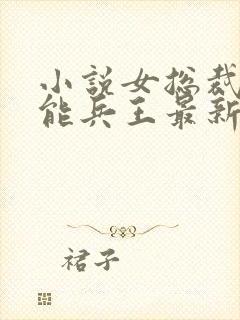 小说女总裁
能兵王最新
裙子